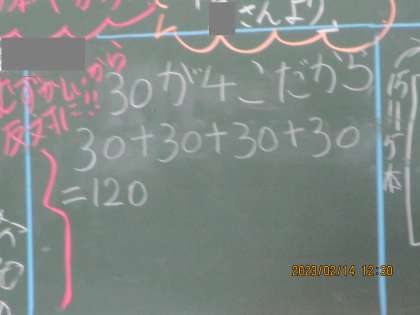 さんより
むずかしいから
反対に!!
30が4こだから
30+30+30+30
=120
15=5本
2023/02/14 12:30